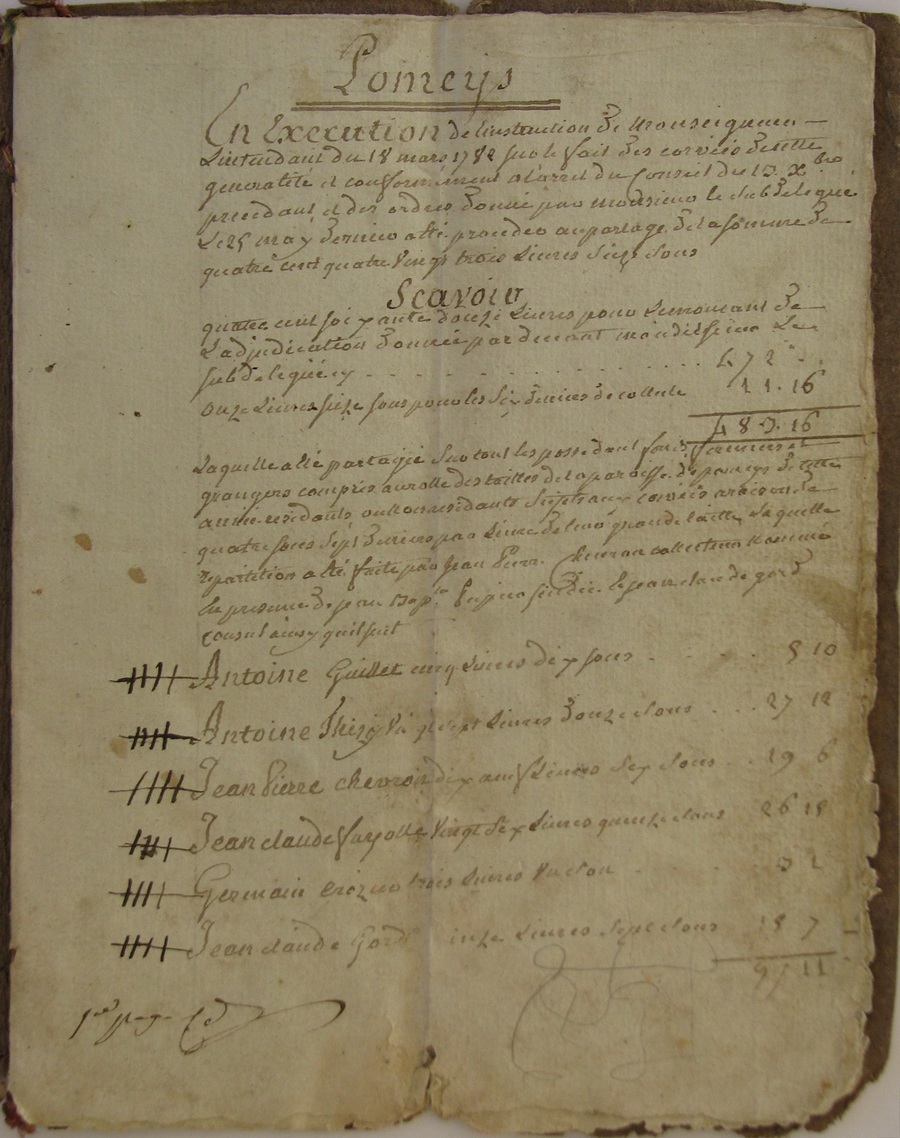 Pomeys
En Execution de linstruction de Monseigneur
Lintendant du 18 mars 1782 sur le fait des corvées de cette
generalité et conformement a larret du Conseil du 13 Xbre
precedant et des ordres donné par monsieur le subdelegué
Le 25 may dernier a été procedée au partage de la somme de
quatre cent quatre vingt trois Livres seize sous
Scavoir
quatre cent soixante douze Livres pour Lemontant de
Ladjudication donnée pardevant mondit sieur Le
subdelegué cy 472
onze Livres seize sous pour les six deniers de collecte 11. 16
483. 16
Laquelle a été partagée sur tout les possedant fond, fermiers et
grangers compris au rolle des tailles de la paroisse de pomeys de cette
année residants ou non residants sujets aux corvées a raison de
quatre sous sept deniers par Livre de leur grande taille Laquelle
repartition a été faite par Jean Pierre Chevron collecteur nommé
En presence de jean Bapte sindic et jean claude gord
consul ainsy quil suit
Antoine Guillet cinq Livres dix sous 5 10
Antoine Thizy Vingt sept Livres douze sous 27 12
Jean Pierre chevron dix neuf Livres six sous 19 6
Jean claude fayolle Vingt six Livres quinze sous 26 15
Germain crozier trois Livres Un sou 3 1
Jean claude Gord Livres sept sous 7
97 11
1ere page